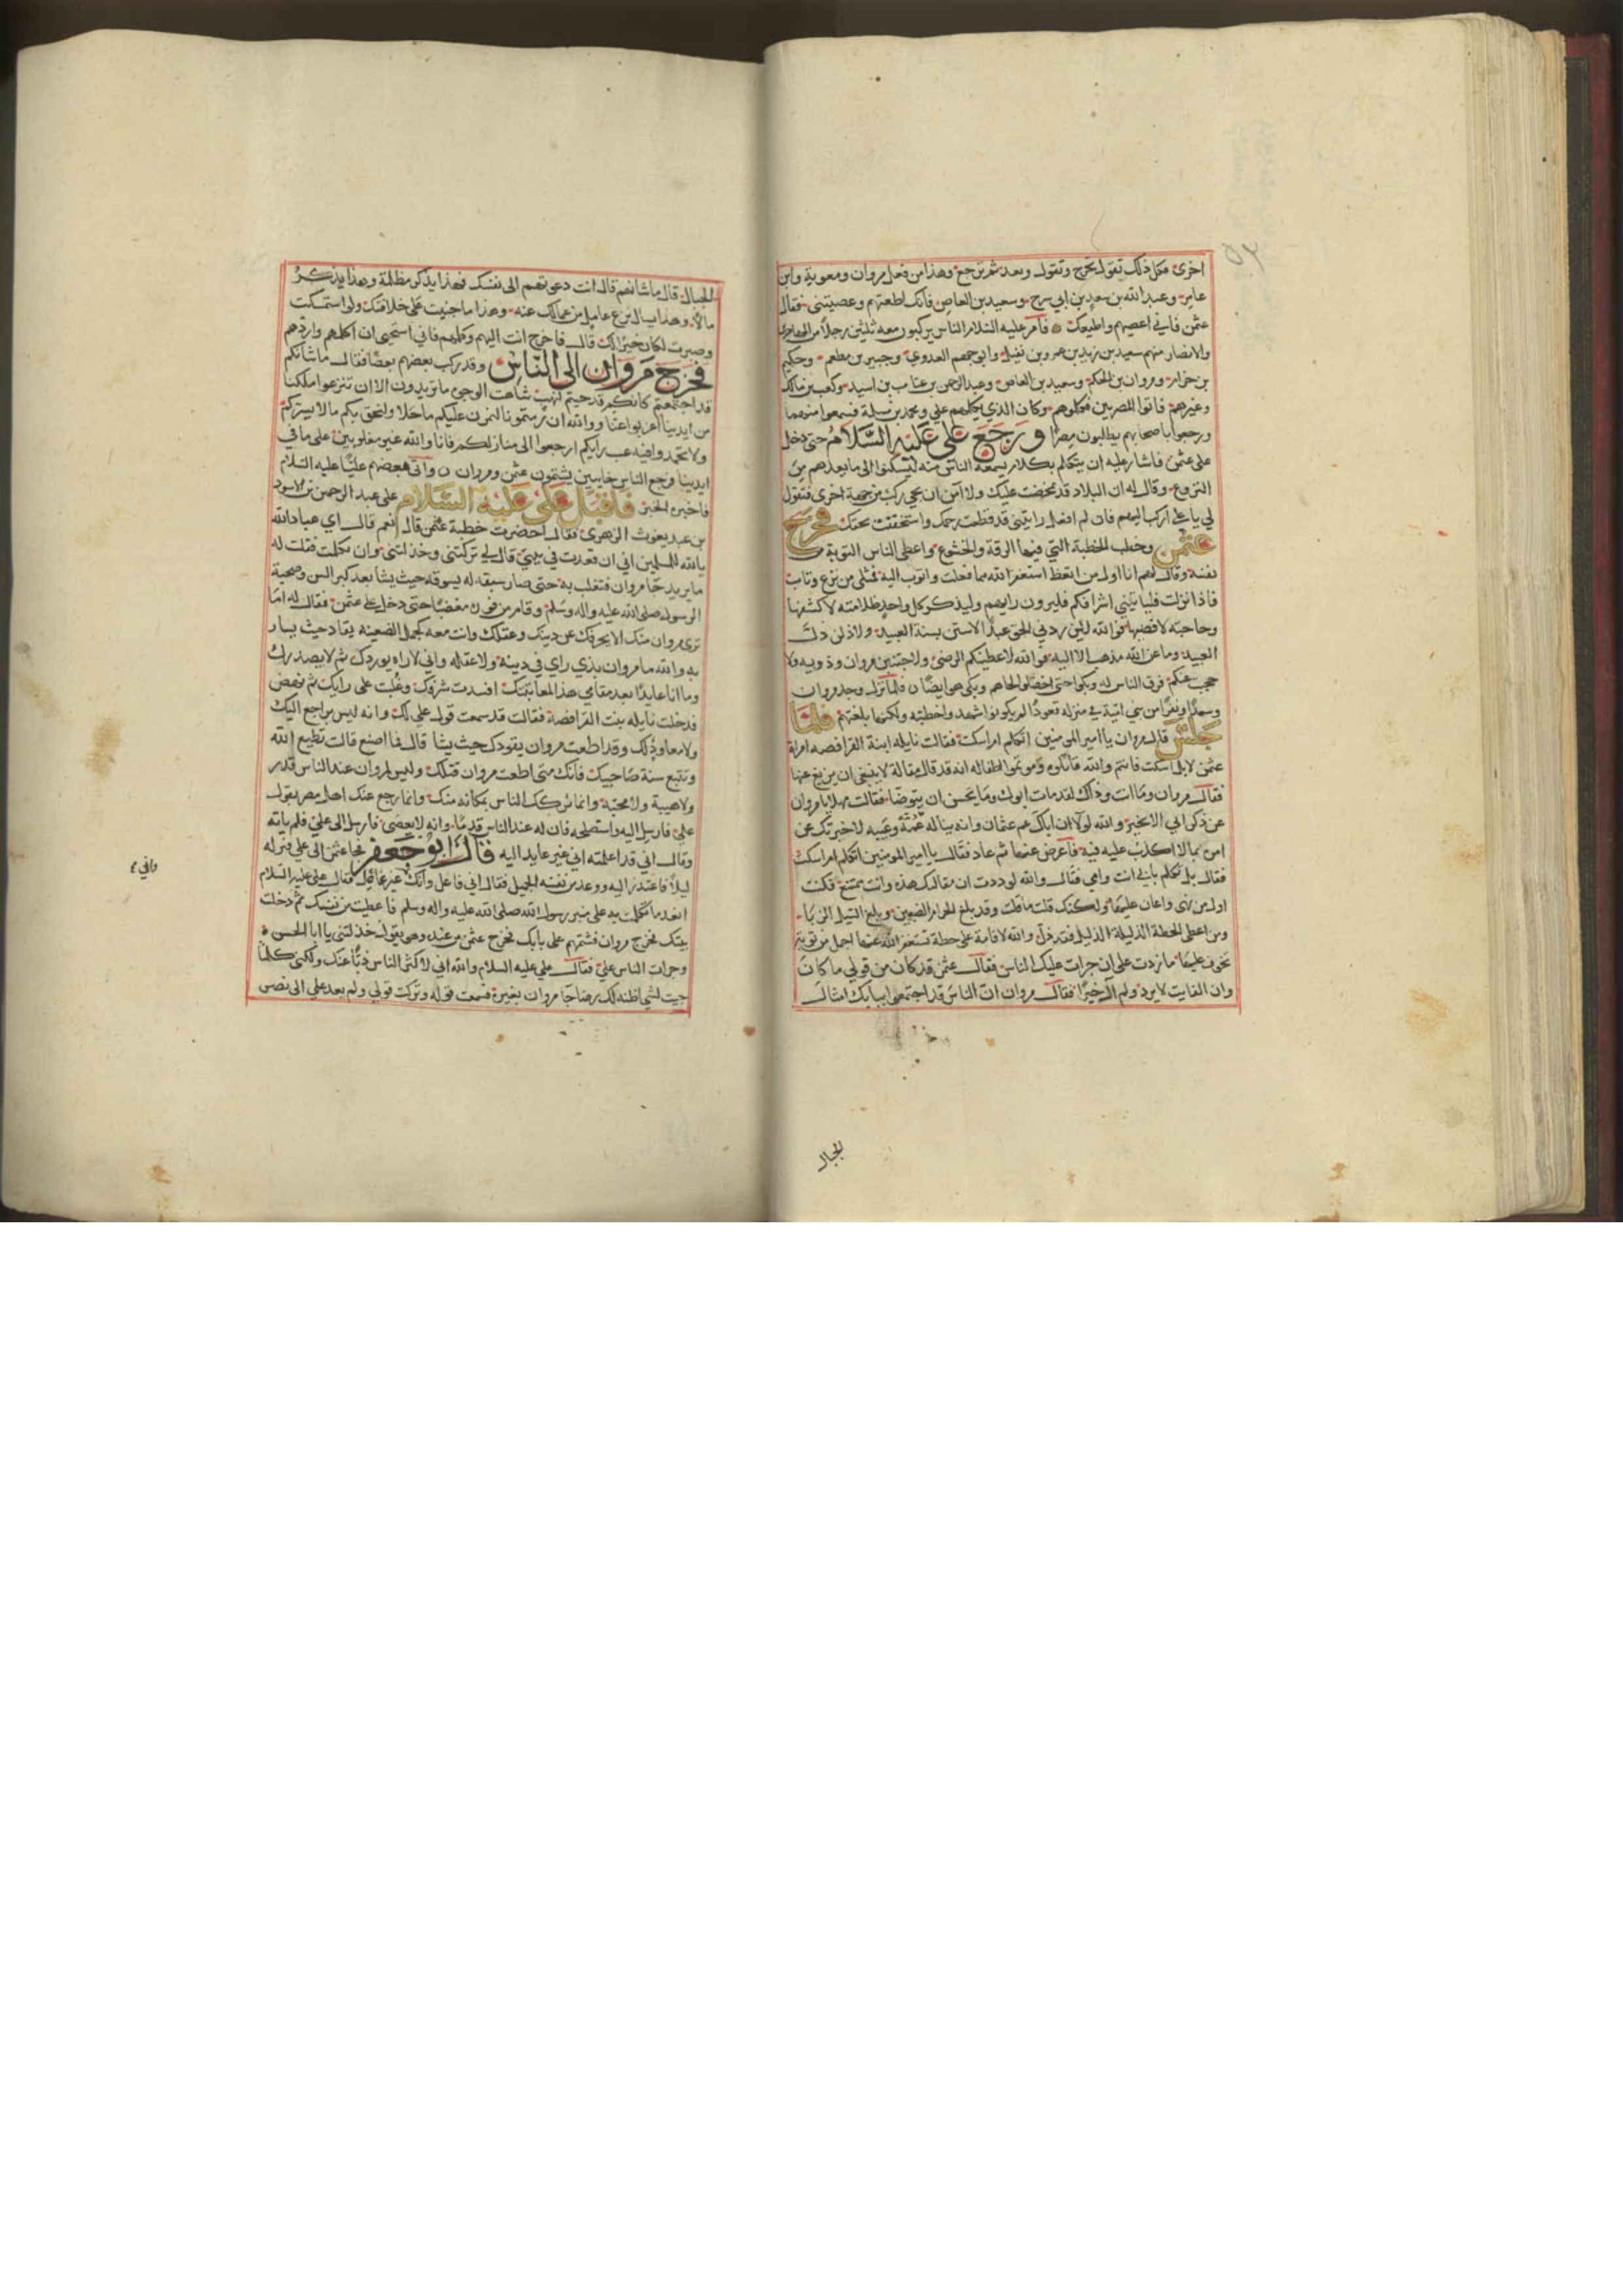 اخرى فكل ذلك تقول نخرج وتقول ونعد ثم ترجع وهذا من فعل مروان ومعوية وابن
عامر وعبد الله بن سعد بن ابي سرح وسعيد بن العاص فانك اطعتهم وعصيتني فقال
عثمن فاني اعصيهم واطيعك فامر عليه السلام الناس يركبون معه ثلثين رجلا من المهاجرين
والانصار منهم سعيد بن زيد بن عمرو بن نفيل وابو جهم العدوي وجبير بن مطعم وحكيم
بن حزام ومروان بن الحكم وسعيد بن العاص وعبد الرحمن بن عتاب بن اسيد وكعب بن مالك
وغيرهم فاتوا المصريين فكلموهم وكان الذي يكلمهم علي ومحمد بن مسلمة فسمعوا منهما
ورجعوا باصحابهم يطلبون مصر ورجع علي عليه السلام حتى دخل
على عثمن فاشار عليه ان يتكلم بكلام يسمعه الناس منه ليسكنوا الى ما يعدهم من
النزوع وقال له ان البلاد قد تمخضت عليك ولا آمن ان يجي ركب من جهة اخرى فتقول
لي يا علي اركب اليهم فان لم افعل رايتني قد قطعت رحمك واستخففت بحقك فخرج
عثمن وخطب الخطبة التي فيها الرقة والخشوع واعطى الناس التوبة من
نفسه وقال لهم انا اول من اتعظ استغفر الله مما فعلت واتوب اليه فمثلي من نزع وتاب
فاذا نزلت فلياتني اشرافكم فليرون رايهم وليذكر كل واحد ظلامته لاكشفها
وحاجته لاقضيها فوالله لئن ردني الحق عبدا لاستن بسنة العبيد ولاذلن ذل
العبيد وما عن الله مذهب الا اليه فوالله لاعطينكم الرضى ولاجتنبن مروان وذويه ولا
حجب عنكم فرق الناس له وبكوا حتى اخضلوا لحاهم وبكى هو ايضا فلما نزل وجد مروان
وسعدا ونفرا من بني امية في منزله قعودا لم يكونوا شهدوا خطبته ولكنها بلغتهم فلما
جلس قال مروان يا امير المومنين اتكلم ام اسكت فقالت نايله ابنة القرافصه امراة
عثمن لا بل اسكت فانتم والله قاتلوه وموتموا اطفاله انه قد قال مقالة لا ينبغي ان ينزع عنها
فقال مروان وما انت وذاك لقد مات ابوك وما يحسن ان يتوضا فقالت مهلا يا مروان
عن ذكر ابي الا بخير والله لولا ان اباك عم عثمان وانه يناله غمه وعيبه لاخبرتك عن
امره بما لا اكذب عليه فيه فاعرض عنها ثم عاد فقال يا امير المومنين اتكلم ام اسكت
فقال بل تكلم بابي انت وامي فقال والله لوددت ان مقالتك هذه وانت ممتنع فكنت
اول من رضي واعان عليها ولكنك قلت ما قلت وقد بلغ الحزام الطبيين وبلغ السيل الزبا
وحين اعطى الخطة الذليلة الذليل فقد دخل والله لاقامة على خطة تستغفر الله عنها اجمل من توبة
تخوف عليها ما زدت على ان جرات عليك الناس فقال عثمن قد كان من قولي ما كان
وان الفايت لا يرد ولم آل خيرا فقال مروان ان الناس قد اجتمعوا ببابك امثال
الجبال
الجبال قال ما شانهم قال انت دعوتهم الى نفسك فهذا يذكر مظلمة وهذا يذكر
مالا وهذا يسال نزع عامل من عمالك عنه وهذا ما جنيت على خلافتك ولو استمسكت
وصبرت لكان خيرا لك قال فاخرج انت اليهم وكلمهم فاني استحيى ان اكلمهم واردهم
فخرج مروان الى الناس وقد ركب بعضهم بعضا فقال ما شانكم
قد اجتمعتم كانكم قد جيتم لنهب شاهت الوجوه ما تريدون الا ان تنزعوا ملكنا
من ايدينا اعزبوا عنا ووالله ان رمتمونا لنمرن عليكم ماحلا ولنحلن بكم ما لا يسركم
ولا تحمدوا فيه غب رايكم ارجعوا الى منازلكم فانا والله غير مغلوبين على ما في
ايدينا فرجع الناس خايبين يشتمون عثمن ومروان واتى بعضهم عليا عليه السلام
فاخبره الخبر فاقبل علي عليه السلام على عبد الرحمن بن الاسود
بن عبد يغوث الزهري فقال احضرت خطبة عثمن قال نعم قال اي عباد الله
يا لله للمسلمين اني ان قعدت في بيتي قال لي تركتني وخذلتني وان تكلمت فقلت له
ما يريد جا مروان فتغلب به حتى صار سيقه له يسوقه حيث يشا بعد كبر السن وصحبة
الرسول صلى الله عليه واله وسلم وقام من فوره مغضبا حتى دخل على عثمن فقال له اما
ترى مروان منك الا بحرفك عن دينك وعقلك وانت معه كجمل الضعينه يقاد حيث يسار
به والله ما مروان بذي راي في دينه ولا عقله واني لاراه يوردك ثم لا يصدرك
وما انا عايدا بعد مقامي هذا لمعاتبتك افسدت شرفك وغلبت على رايك ثم نهض
فدخلت نايله بنت القرافصة فقالت قد سمعت قول علي لك وانه ليس براجع اليك
ولا معاوذلك وقد اطعت مروان يقودك حيث يشا قال فما اصنع قالت تطيع الله
وتتبع سنة صاحبيك فانك متى اطعت مروان قتلك وليس لمروان عند الناس قدر
ولا هيبة ولا محبة وانما تركك الناس بمكانه منك وانما رجع عنك اهل مصر بقول
علي فارسل اليه واستصلحه فان له عند الناس قدما وانه لا يعصى فارسل الى علي فلم ياته
وقال اني قد اعلمته اني غير عايد اليه قال ابو جعفر فجا عثمن الى علي منزله
ليلا فاعتذر اليه ووعد من نفسه الجميل فقال اني فاعل وانك غير فاعل فقال علي عليه السلام
ابعد ما تكلمت به على منبر رسول الله صلى الله عليه واله وسلم فاعطيت من نفسك ثم دخلت
بيتك فخرج مروان فشتمهم على بابك فخرج عثمن من عنده وهو يقول خذلتني يا ابا الحسن
وجرات الناس علي فقال علي عليه السلام والله اني لاكثر الناس ذبا عنك ولكني كلما
جيت لشي اظنه لك رضا جا مروان بغيره فسمعت قوله وتركت قولي ولم يعد علي الى نصر